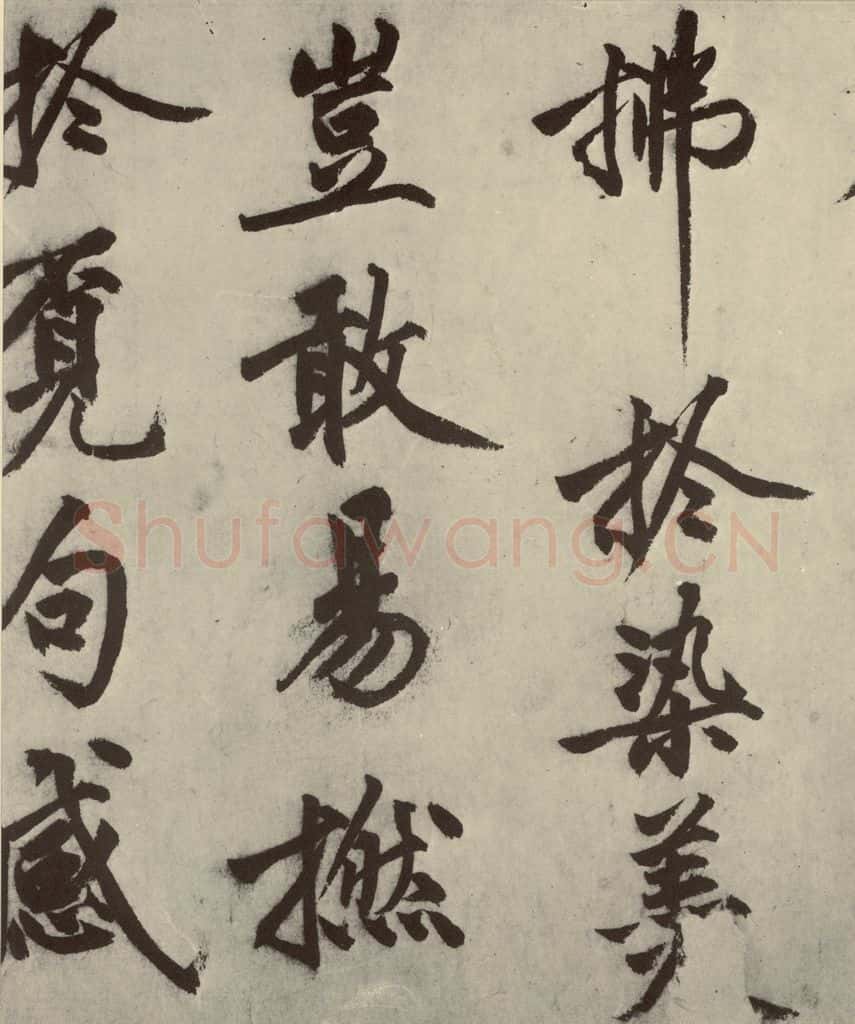 拂於染美
豈敢易撚
於覓句感
Shufawang.CN